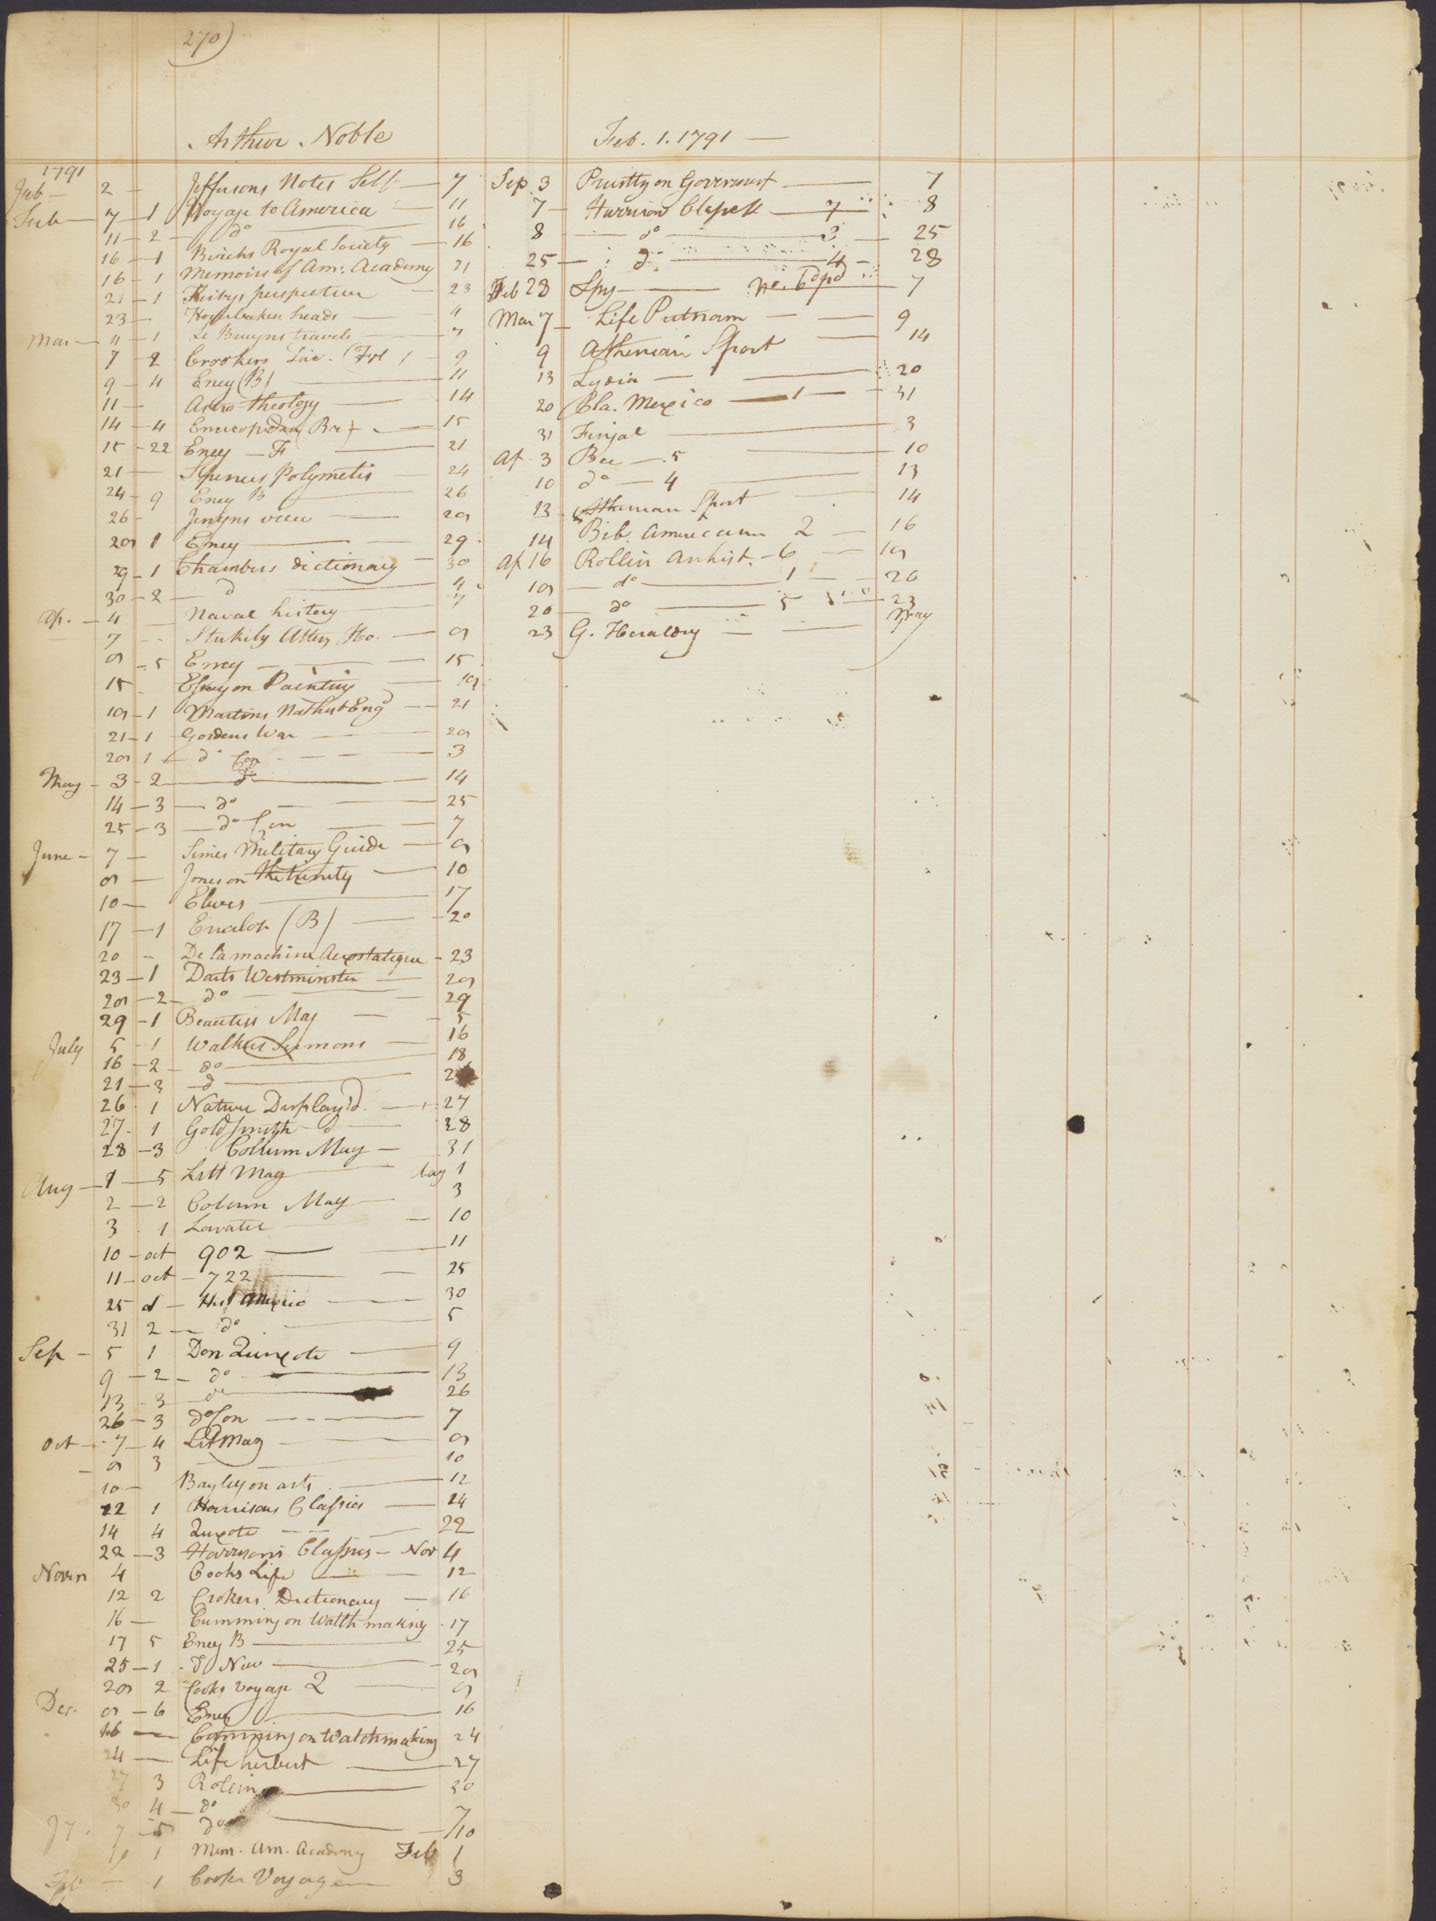 270)
Arthur Noble
Feb. 1. 1791 —
1791
Feb — 2 — Jeffersons Notes Self — 7
Feb — 7 — 1 Voyage to America — 11
11 — 2 — do — 16
16 — 1 Birchs Royal Society — 16
16 — 1 Memoirs of Am. Academy 21
21 — 1 Kirbys perspective — 23
23 — heads — 4
Mar — 4 — 1 Le Bruyns travels — 7
7 — 2 Crookers Dic. — 9
9 — 4 Ency (B) — 11
11 — Astro-theology — 14
14 — 4 (Br) — 15
15 — 22 Ency — F — 21
21 — Spences Polymetis — 24
24 — 9 Ency B — 26
26 — Jenyns view — 29
29 1 Ency — 29
29 — 1 Chambers dictionary — 30
30 — 2 — d — 4
Ap. — 4 — Naval history — 7
7 — Stukely — 9
9 — 5 Ency — 15
15 Essay on Painting — 19
19 — 1 Martins — 21
21 — 1 Gordons War — 29
29 1 — do Con — 3
May — 3 — 2 — do — 14
14 — 3 — do — 25
25 — 3 — do Con — 7
June — 7 — Simes Military Guide — 9
9 — Jones on the trinity — 10
10 — Elwes — 17
17 — 1 (B) — 20
20 — De la machine Aerostatique — 23
23 — 1 Darts Westminster — 29
29 — 2 — do — 29
29 — 1 Beauties Mag — 5
July 5 — 1 Walkers Sermons — 16
16 — 2 — do — 18
21 — 3 — d
26 1 Nature Display'd. — 27
27 — 1 Goldsmith — 28
28 — 3 Colum Mag — 31
Aug — 1 — 5 Litt Mag — Aug 1
2 — 2 Colum Mag — 3
3 — 1 Lavater — 10
10 — oct 902 — 11
11 — oct — 722 — 25
25 — Hist Mexico — 30
31 2 — do — 5
Sep — 5 1 Don Quixote — 9
9 — 2 — do — 13
13 — 3 — do — 26
26 — 3 do Con — 7
Oct — 7 — 4 Lit Mag — 9
9 3 — 10
10 — Bayley on arts — 12
12 1 Harrisons Classics — 14
14 4 Quixote — 22
22 — 3 Harrisons Classics — Nov 4
Novem 4 Cooks Life — 12
12 2 Crokers Dictionary — 16
16 — Cumming on Watch making — 17
17 5 Ency B — 25
25 — 1 New — 29
29 2 Cooks voyage 2 — 9
Dec. 9 — 6 Ency — 16
16 — Cumming on Watchmaking 24
24 — Life herbert — 27
27 3 Rollin — 30
30 4 — do — 7
7 — 5 do — 10
1 Mem. Am. Academy Feb 1
Feb — 1 Cooks Voyage — 3
Sep. 3 Priestly on Government — 7
7 — Harrison Classk — 8
8 — do — 3 — 25
25 — do — 4 — 28
Feb 28 Spy — 7
Mar 7 — Life Putnam — 9
9 Athenian Sport — 14
13 Lydia — 20
20 Cla. Mexico — 1 — 31
31 Fingal — 3
Ap. 3 Bee — 5 — 10
10 do — 4 — 13
13 Athenian Sport — 14
14 Bib. Americana 2 — 16
Ap 16 Rollin An hist. — 6 — 19
19 — do — 1 — 20
20 — do — 5 — 23
23 G. Heraldry — May